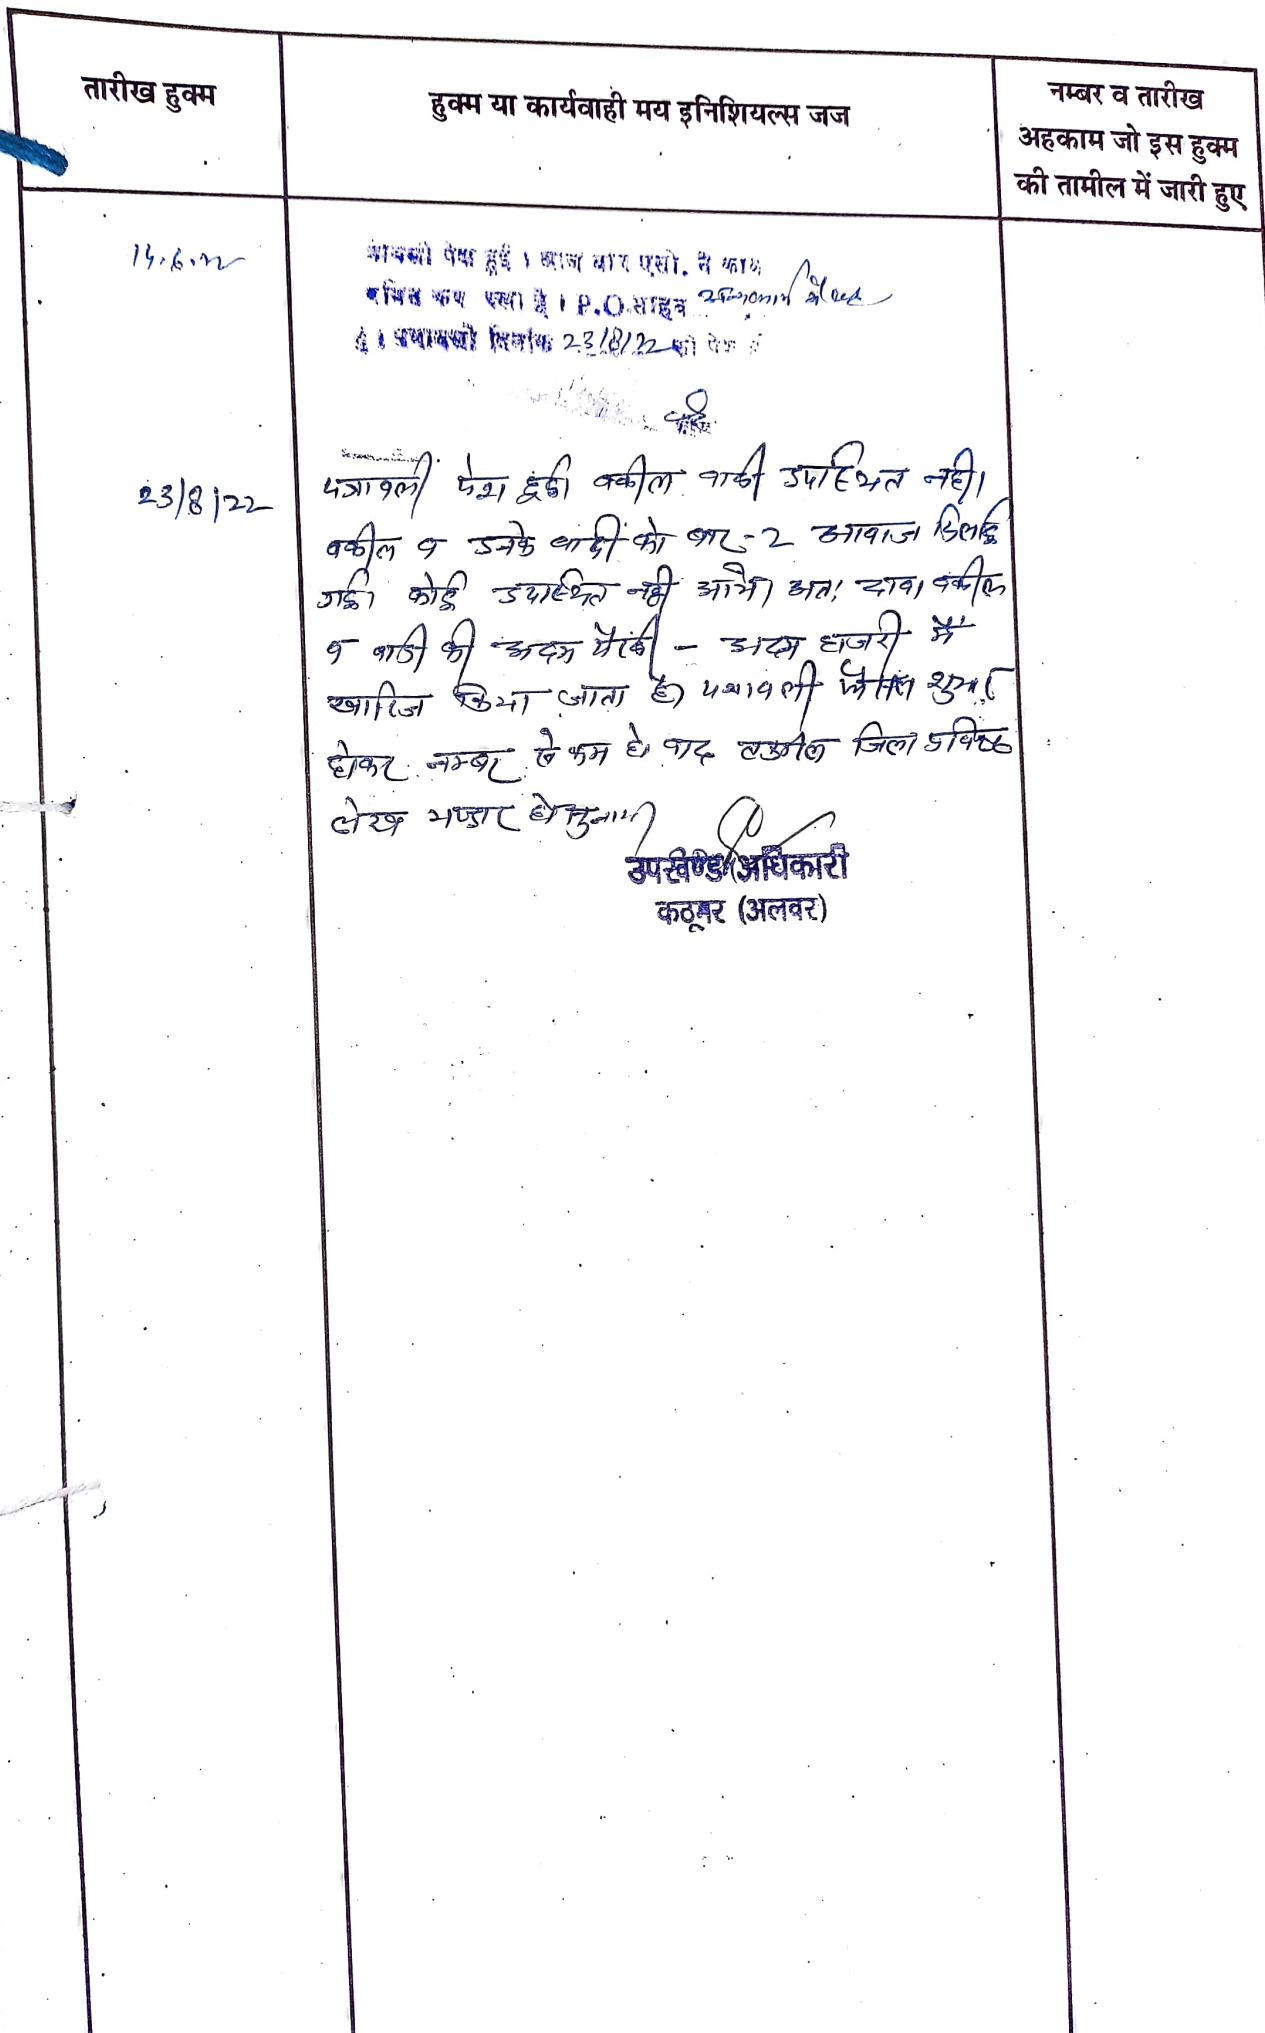 तारीख हुक्म
हुक्म या कार्यवाही मय इनिशियल्स जज
नम्बर व तारीख
अहकाम जो इस हुक्म
की तामील में जारी हुए
पेश हुई । आज बार एसो. ने कार्य
रखा है । P.O. साहब
है । पत्रावली दिनांक 23/8/22 को पेश हो
23/8/22
पत्रावली पेश हुई। वकील वादी उपस्थित नही।
वकील व उनके वादी को बार-2 आवाज दिलाई
गई। कोई उपस्थित नही आये। अतः दावा वकील
व वादी की अदम पैरवी - अदम हाजरी में
खारिज किया जाता है। पत्रावली फैसल शुमार
होकर नम्बर से कम हो बाद तकमील जिला अभिलेख
लेख भण्डार हो
उपखण्ड अधिकारी
कठूमर (अलवर)